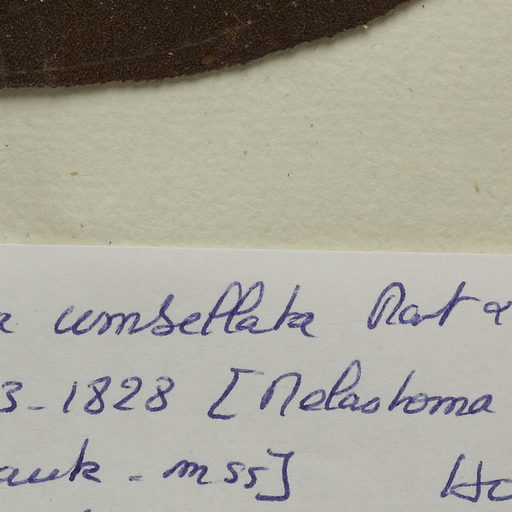 umbellata Mart &
3-1828 [Melastoma
auk - mss] Ho